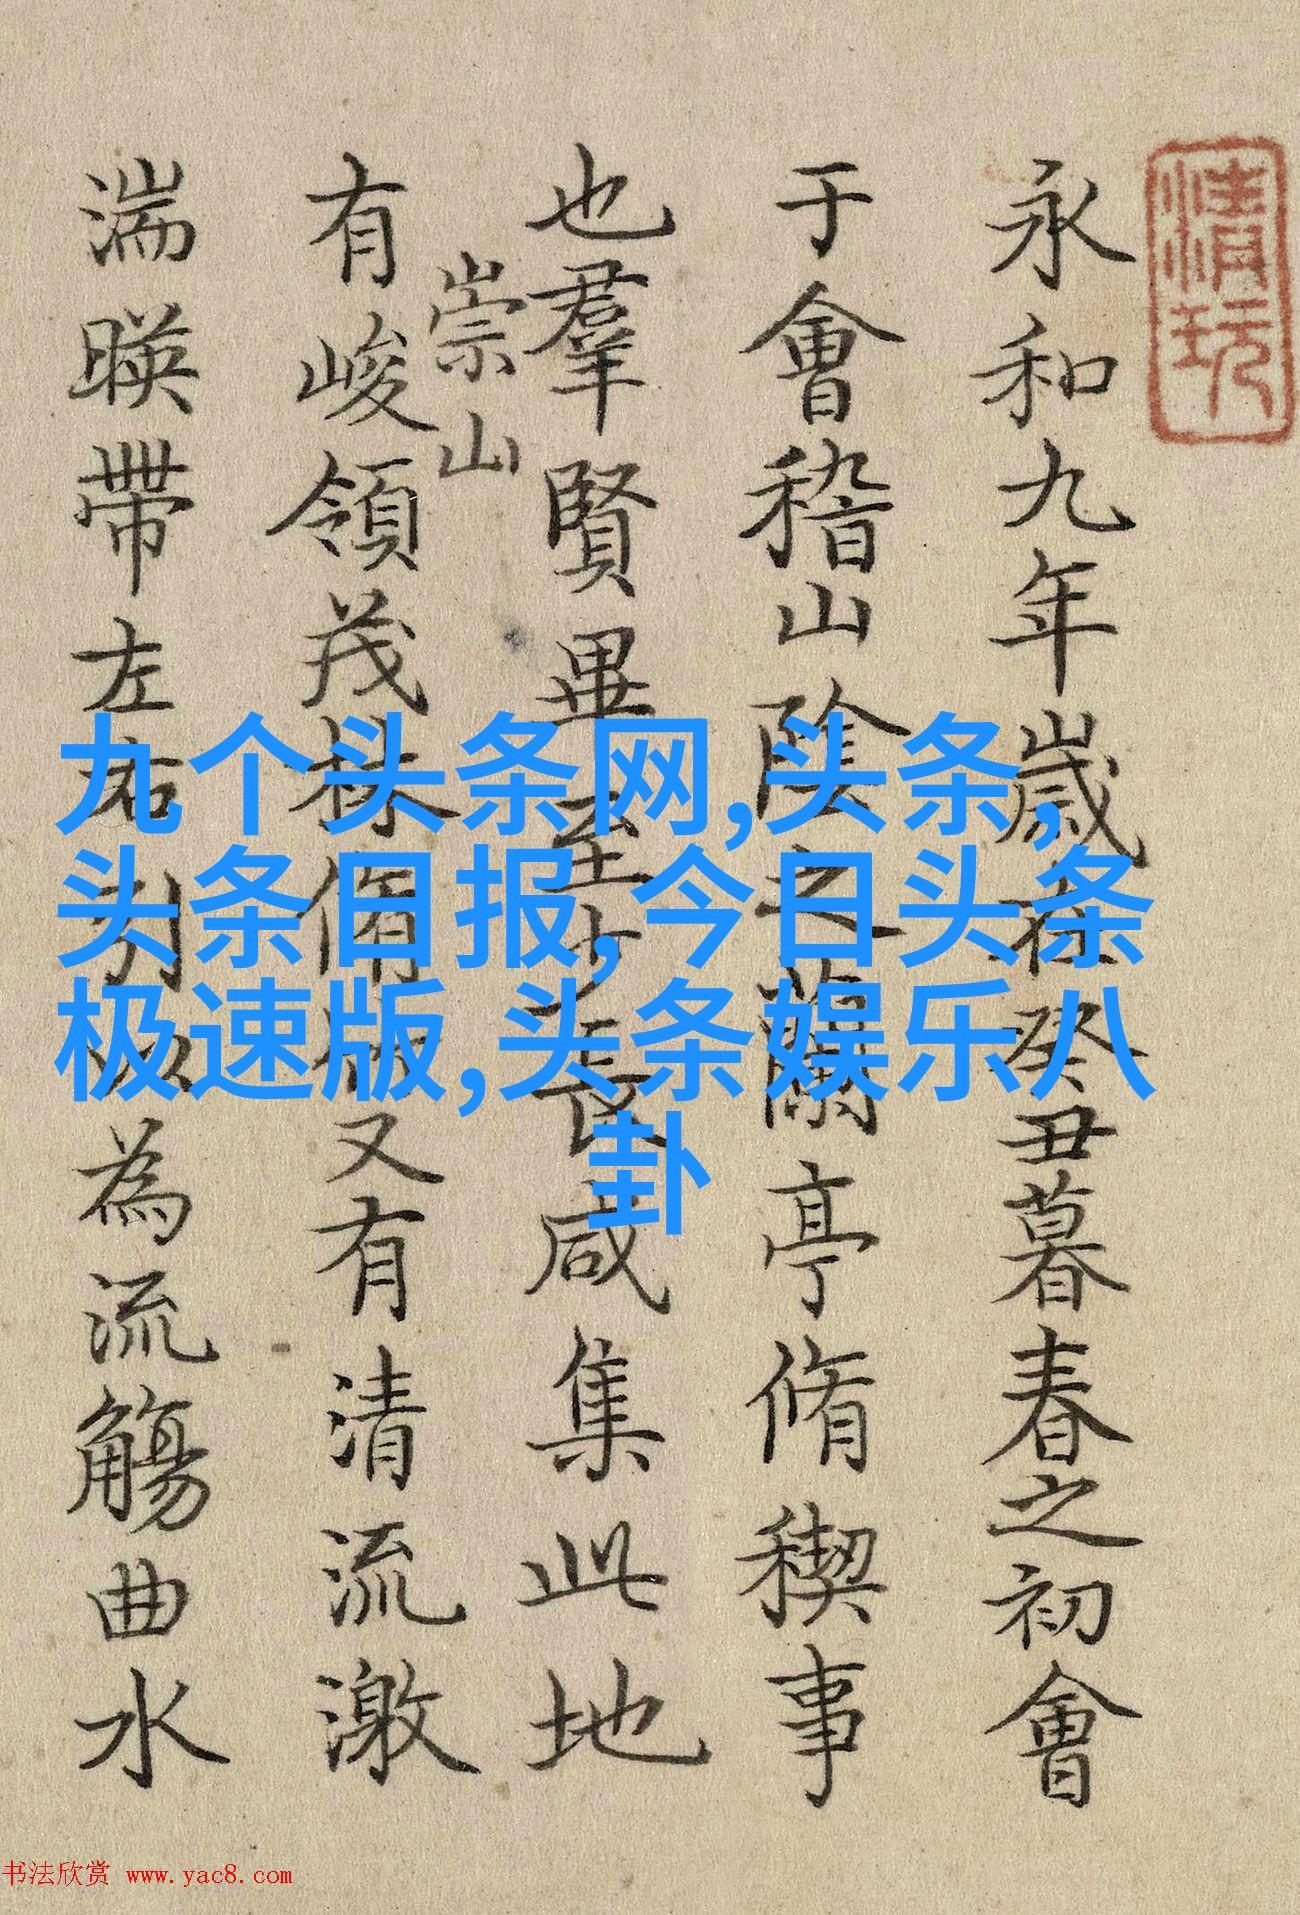 清玩
永和九年歲在癸丑暮春之初會
于會稽山陰之蘭亭脩稧事
也羣賢畢至少長咸集此地
崇山
有峻領茂林脩竹又有清流激
湍暎帶左右引以為流觴曲水
九个头条网,头条,
头条日报,今日头条
极速版,头条娱乐八
卦
书法欣赏 www.yac8.com